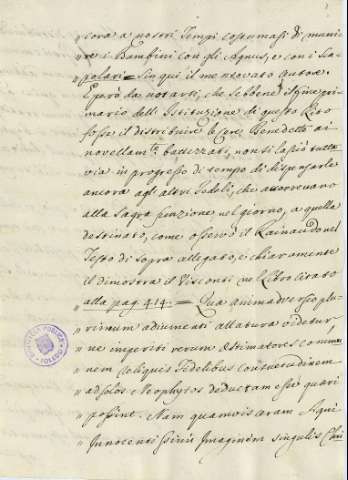 " cora a nostri Tempi costumasi di muni-
" re i Bambini con gli Agnus, e con i Sca-
" polari = Sin qui il mentovato Autore.
E però da notarsi, che sebbene il fine pri-
mario dell'Istituzione di questo Rito
fosse il distribuire le Cere Benedette ai
novellam.te battezzati, non si lasciò tutta-
via in progresso di tempo di dispensarle
ancora agli altri Fedeli, che accorrevano
alla Sagra funzione nel giorno, a quella
destinato, come osservò il Rainaudo nel
Testo di sopra allegato, e chiaramente
il dimostra il Visconti nel Libro citato
alla pag. 414. = Qua animadversio plu-
" rimum adiumenti allatura videtur,
" ne imperiti rerum Æstimatores commu-
nem reliquis Fidelibus Consuetudinem
" ad solos Neophytos deductam esse queri
" possint. Nam quamvis ceram Agni
" Innocentissimi Imaginem singulis Chri
BIBLIOTECA PUBLICA
TOLEDO